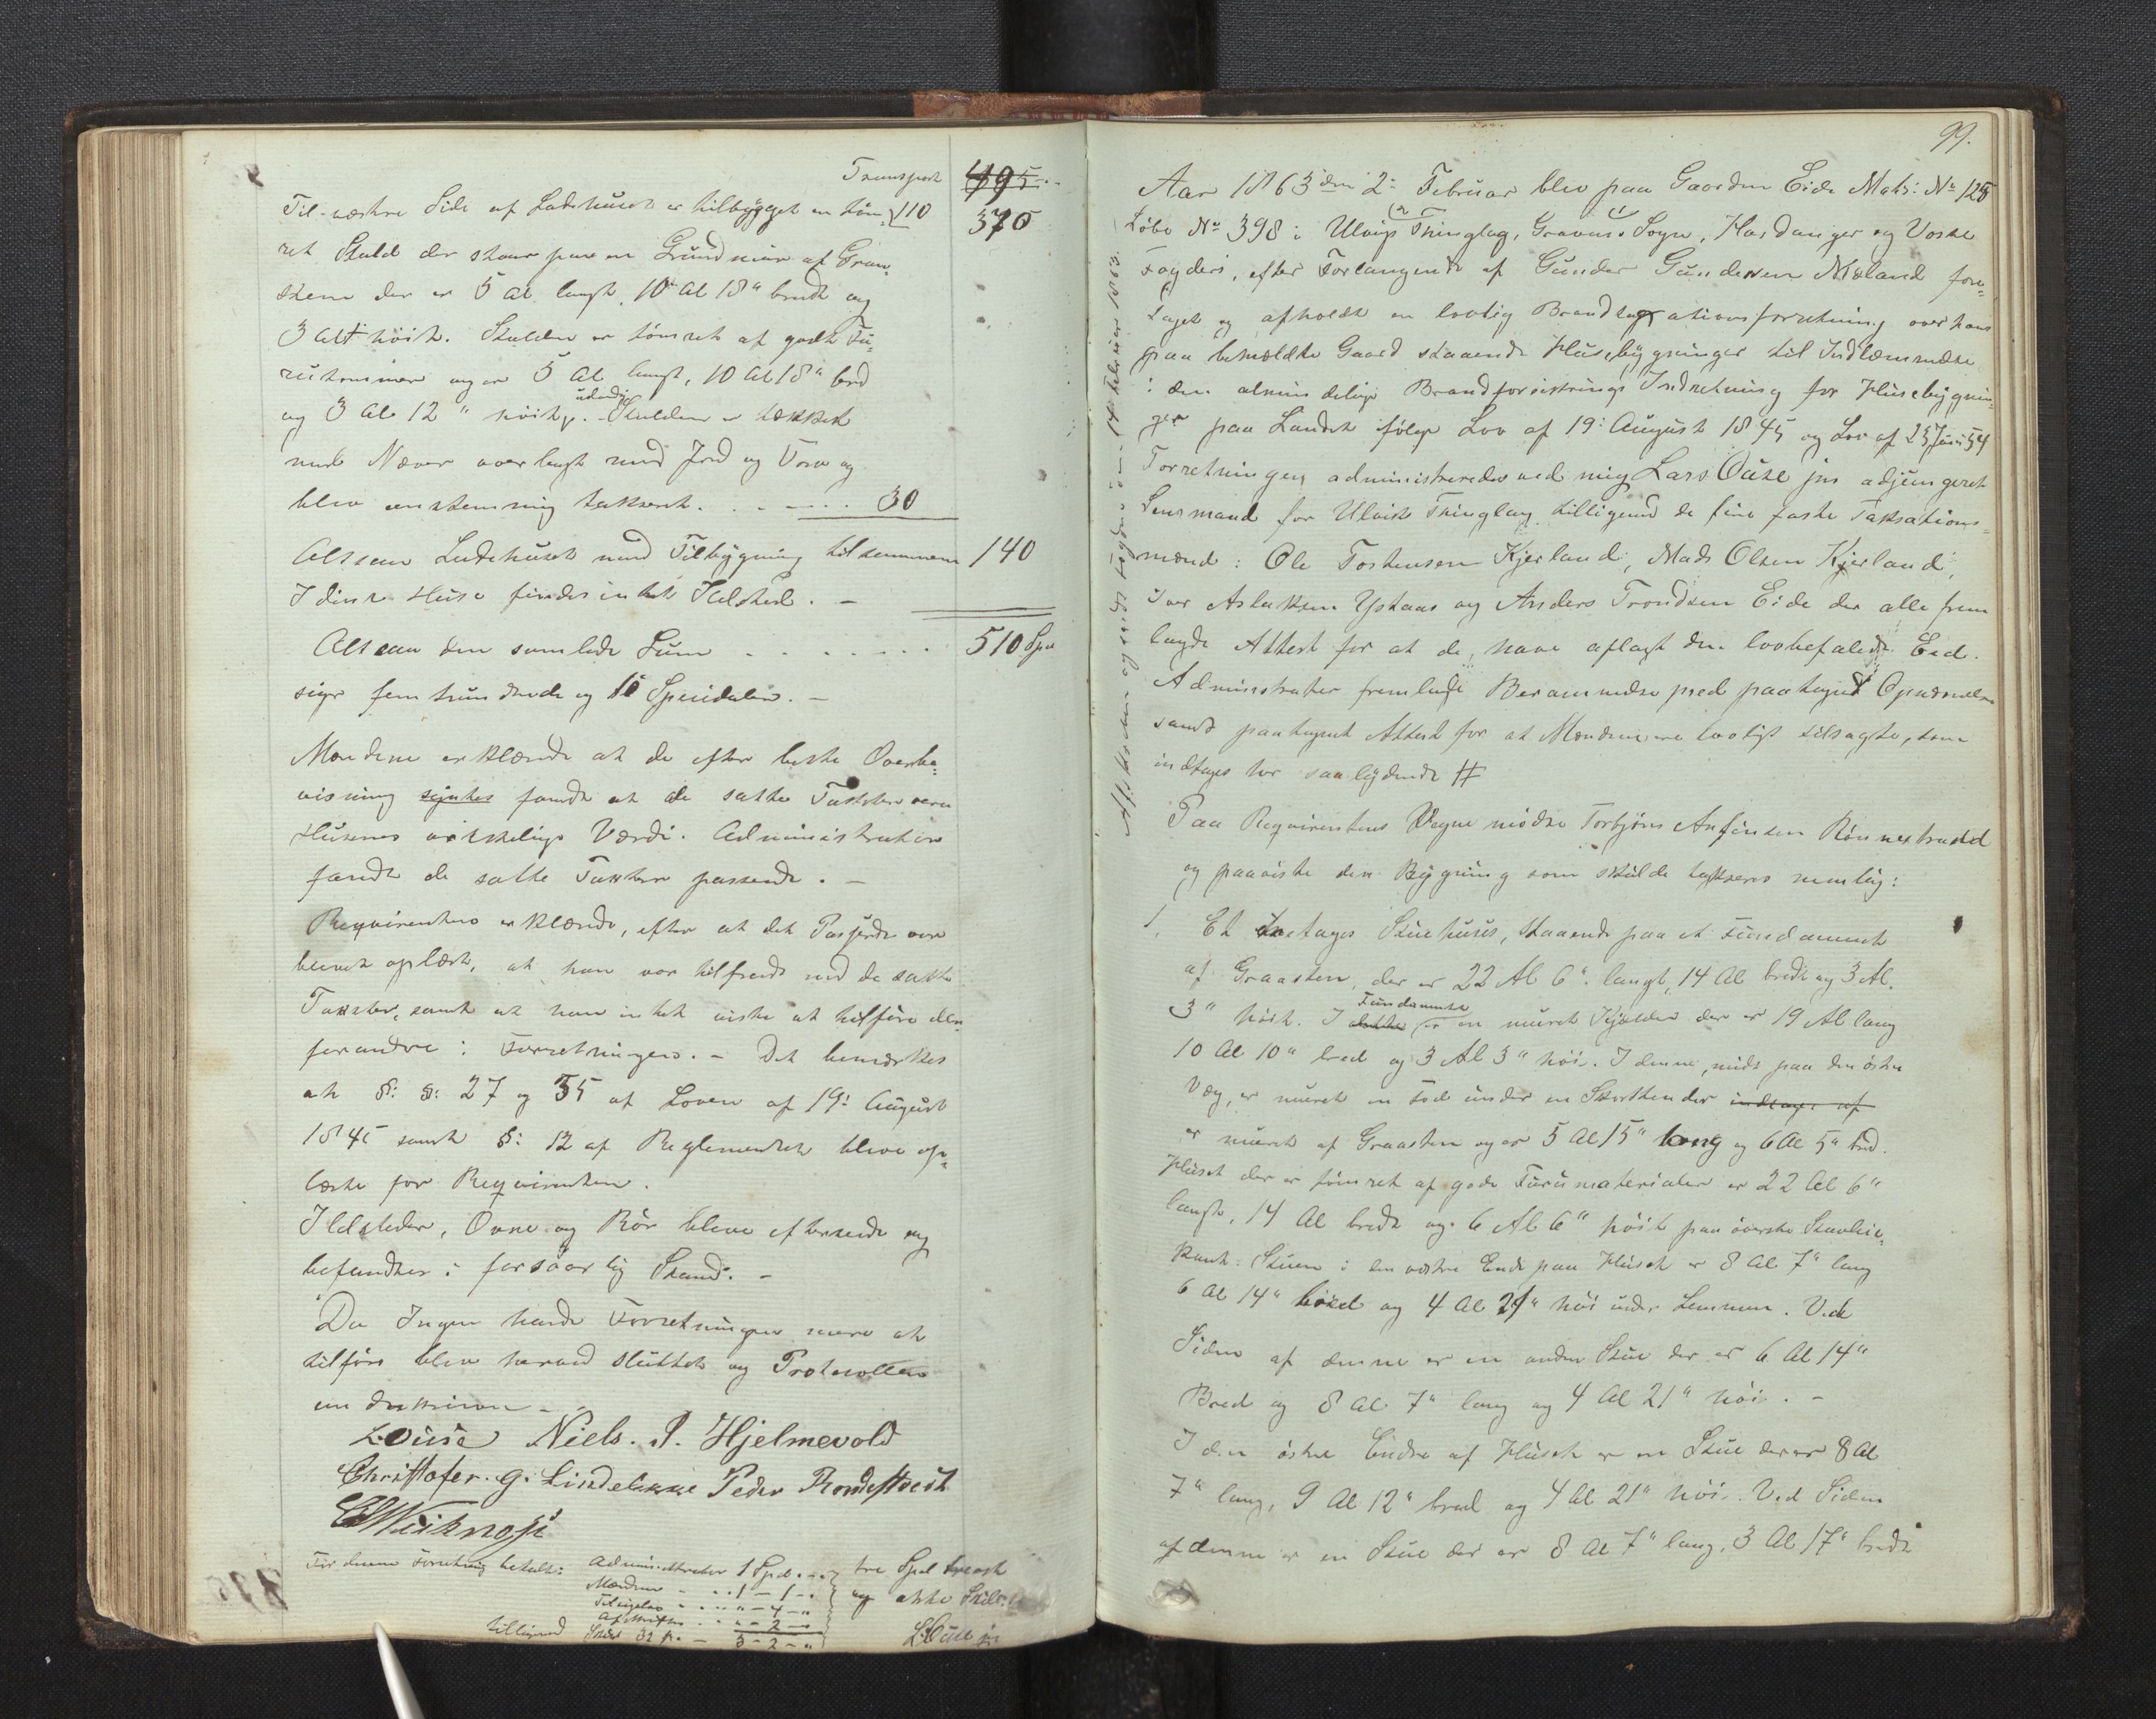 Transport 495
Til vestre Side af Ladehuset er tilbygget en töm- 110 370
ret Stald der staar paa en Grundmur af Graa-
steen der er 5 Al langt, 10 Al 18" bredt og
3 Alt höit. Stalden er tömret af godt Fu-
rutømmer og er 5 Al langt, 10 Al 18" bred
og 3 Al 12" höit udvendig. Stalden er tækket
med Næver overlagt med Jord og Torv og
blev eenstemmig takseret. . . - - . . 30
Altsaa Ladehuset med Tilbygning tilsammen 140
I disse Huse findes intet Ildsted. -
Altsaa den samlede Sum . . . . . . . 510 Spd
siger fem hundrede og ti Speciedaler. -
Mændene erklærede at de efter beste Overbe-
visning syntes fandt at de satte Taxter vare
Husenes virkelige Værdi. Administrator
fandt de satte Taxter passende. -
Requirenten erklærede, efter at det Passerede var
blevet oplæst, at han var tilfreds med de satte
Taxter, samt at han intet viste at tilföre eller
forandre i Forretningen. - Det bemærkes
at §: §: 27 og 35 af Loven af 19: August
1845 samt §: 12 af Reglementet bleve op-
læste for Requirenten.
Ildsteder, Ovne og Rör bleve efterseede og
befandtes i forsvarlig Stand. -
Da Ingen havde Forretningen mere at
tilföre blev herved sluttet og Protocollen
underskreven -
LOuse Niels. J. Hjelmevold
Christofer. G. Lindebrekke Peder
For denne Forretning betalt: Administrator 1 Spd. . - . tre Spd treort
Mændene - . . 1 - 1 - . og otte Skill.
Tilsigelse . . . " - 4 - "
Afskriften . . " - 2 - "
tilligemed 3 - 2 - " LOuse jr
99.
Aar 1863 den 2: Februar blev paa Gaarden Eide Matr: No 128
Löbe No 398 i Ulviks Thinglag, Gravens Sogn, Hardanger og Vosse
Fogderi, efter Forlangende af Gunder Gundersen Mæland fore-
taget og afholdt en lovlig Brandtaxationsforretning over hans
paa bemældte Gaard staaende Husebygninger til Indlemmelse
i den almindelige Brandforsikrings Indretning for Husebygnin-
ger paa Landet fölge Lov af 19: August 1845 og Lov af 23 Juni 54
Forretningen administreredes ved mig Lars Ouse jun adjungeret
Lensmand for Ulvik Thinglag tilligemed de fire faste Taksations-
mænd: Ole Tostensen Kjerland, Mads Olsen Kjerland,
Iver Aslaksen Ystaas og Anders Trondsen Eide der alle frem
lagde Attest for at de have aflagt den lovbefalede Eed.
Administrator fremlagde Berammelse med paategnet Opnævnelse
samt paategnet Attest for at Mændene ere lovligt tilsagte, som
indtages her saalydende #
Paa Requirentens Vegne mödte Torbjörn Anfinsen Rönnestrand
og paaviste den Bygning som skulde takseres nemlig:
1. Et Toetages Stuehuus, staaende paa et Fundament
af Graasten, der er 22 Al 6" langt, 14 Al bredt og 3 Al.
3" höit. I dette Fundamente er en muret Kjælder der er 19 Al lang
10 Al 10" bred og 3 Al 3" höi. I denne, midt paa den östre
Væg, er muret en Fod under en Skorsten der indtages af
er muret af Graasten og er 5 Al 15" lang og 6 Al 5" bred.
Huset der er tömret af gode Furumaterialer er 22 Al 6"
langt, 14 Al bredt og 6 Al 6" höit paa överste Stavlæie-
kant. Stuen i den vestre Ende paa Huset er 8 Al 7" lang
6 Al 14" bred og 4 Al 21" höi under Lemmen. Ved
Siden af denne er en anden Stue der er 6 Al 14"
Bred og 8 Al 7" lang og 4 Al 21" höi. -
I den östre Ende af Huset er en Stue der er 8 Al
7" lang, 9 Al 12" bred og 4 Al 21" höi. Ved Siden
af denne er en Stue der er 8 Al 7" lang, 3 Al 17" bredt